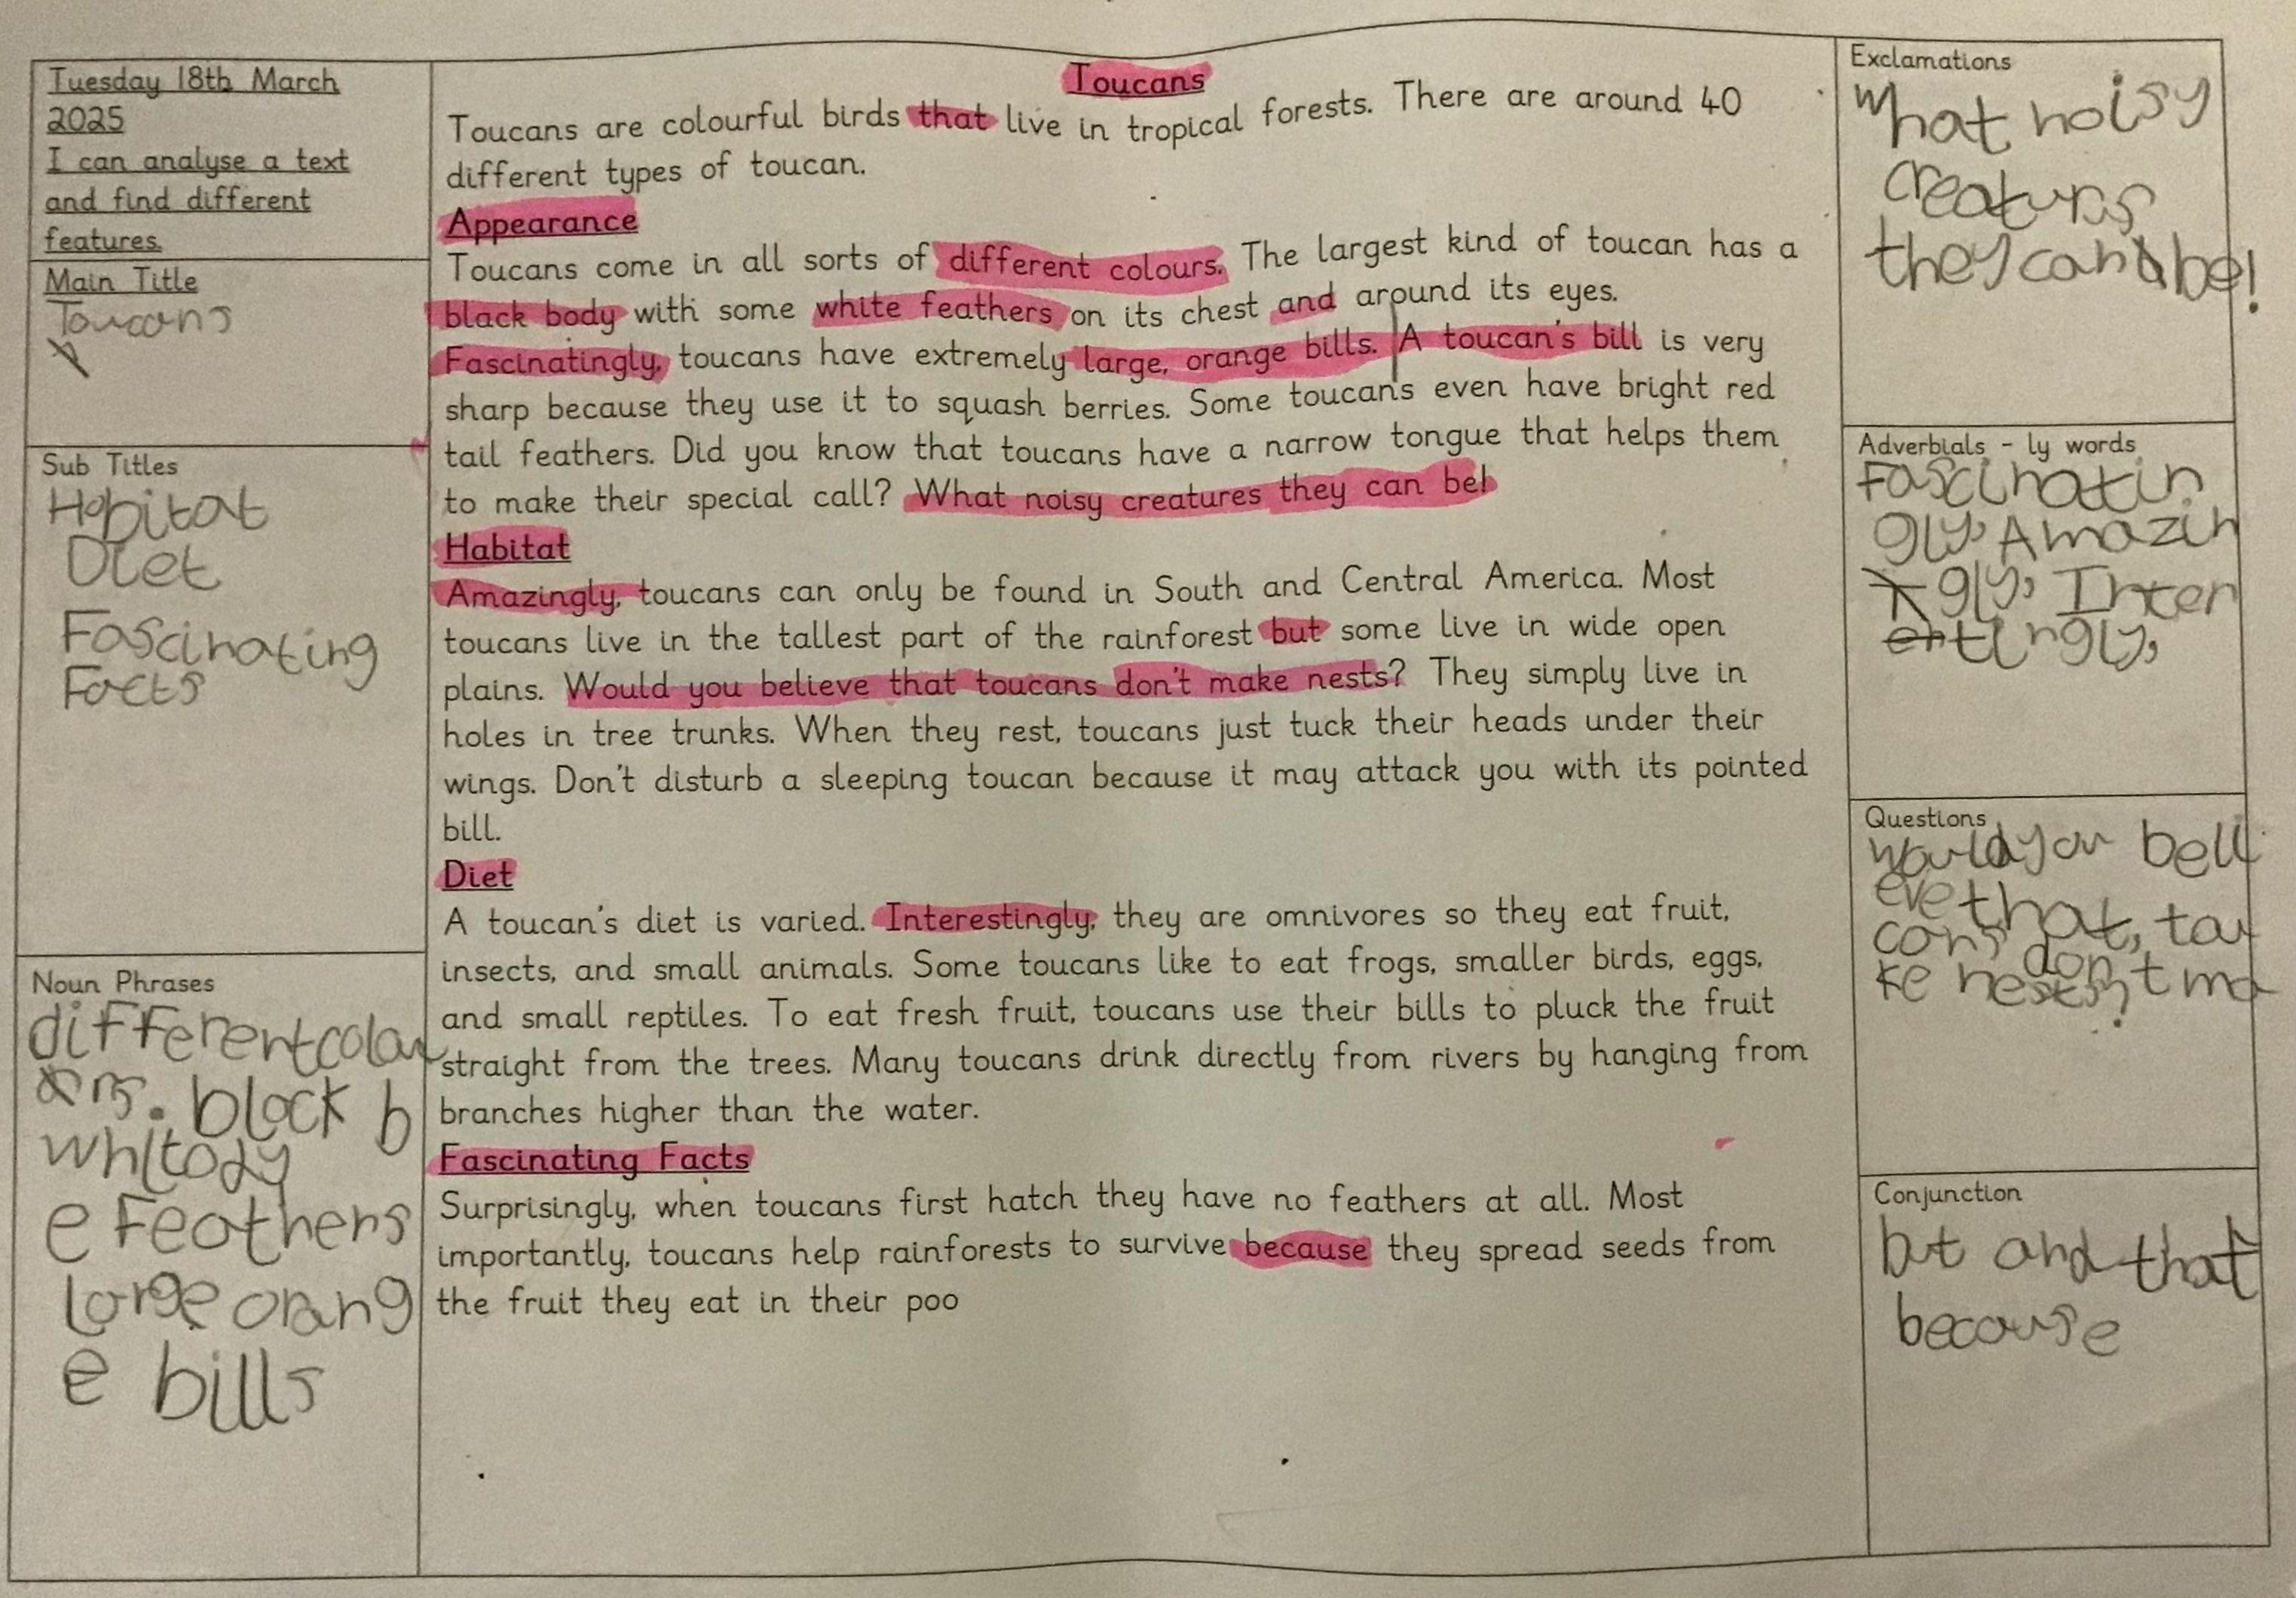 Tuesday 18th March
2025
I can analyse a text
and find different
features.
Main Title
Toucans
Sub Titles
Habitat
Diet
Fascinating
Facts
Noun Phrases
different colou
rs. black b
whitody
e feathers
large orang
e bills
Toucans
Toucans are colourful birds that live in tropical forests. There are around 40
different types of toucan.
Appearance
Toucans come in all sorts of different colours. The largest kind of toucan has a
black body with some white feathers on its chest and around its eyes.
Fascinatingly, toucans have extremely large, orange bills. A toucan's bill is very
sharp because they use it to squash berries. Some toucans even have bright red
tail feathers. Did you know that toucans have a narrow tongue that helps them
to make their special call? What noisy creatures they can be!
Habitat
Amazingly, toucans can only be found in South and Central America. Most
toucans live in the tallest part of the rainforest but some live in wide open
plains. Would you believe that toucans don't make nests? They simply live in
holes in tree trunks. When they rest, toucans just tuck their heads under their
wings. Don't disturb a sleeping toucan because it may attack you with its pointed
bill.
Diet
A toucan's diet is varied. Interestingly, they are omnivores so they eat fruit,
insects, and small animals. Some toucans like to eat frogs, smaller birds, eggs,
and small reptiles. To eat fresh fruit, toucans use their bills to pluck the fruit
straight from the trees. Many toucans drink directly from rivers by hanging from
branches higher than the water.
Fascinating Facts
Surprisingly, when toucans first hatch they have no feathers at all. Most
importantly, toucans help rainforests to survive because they spread seeds from
the fruit they eat in their poo
Exclamations
What noisy
creaturs
they can be!
Adverbials - ly words
Fascinatin
gly, Amazin
gly, Inter
tingly,
Questions
would you beli
eve that, tou
cans don't ma
ke nests?
Conjunction
but and that
because